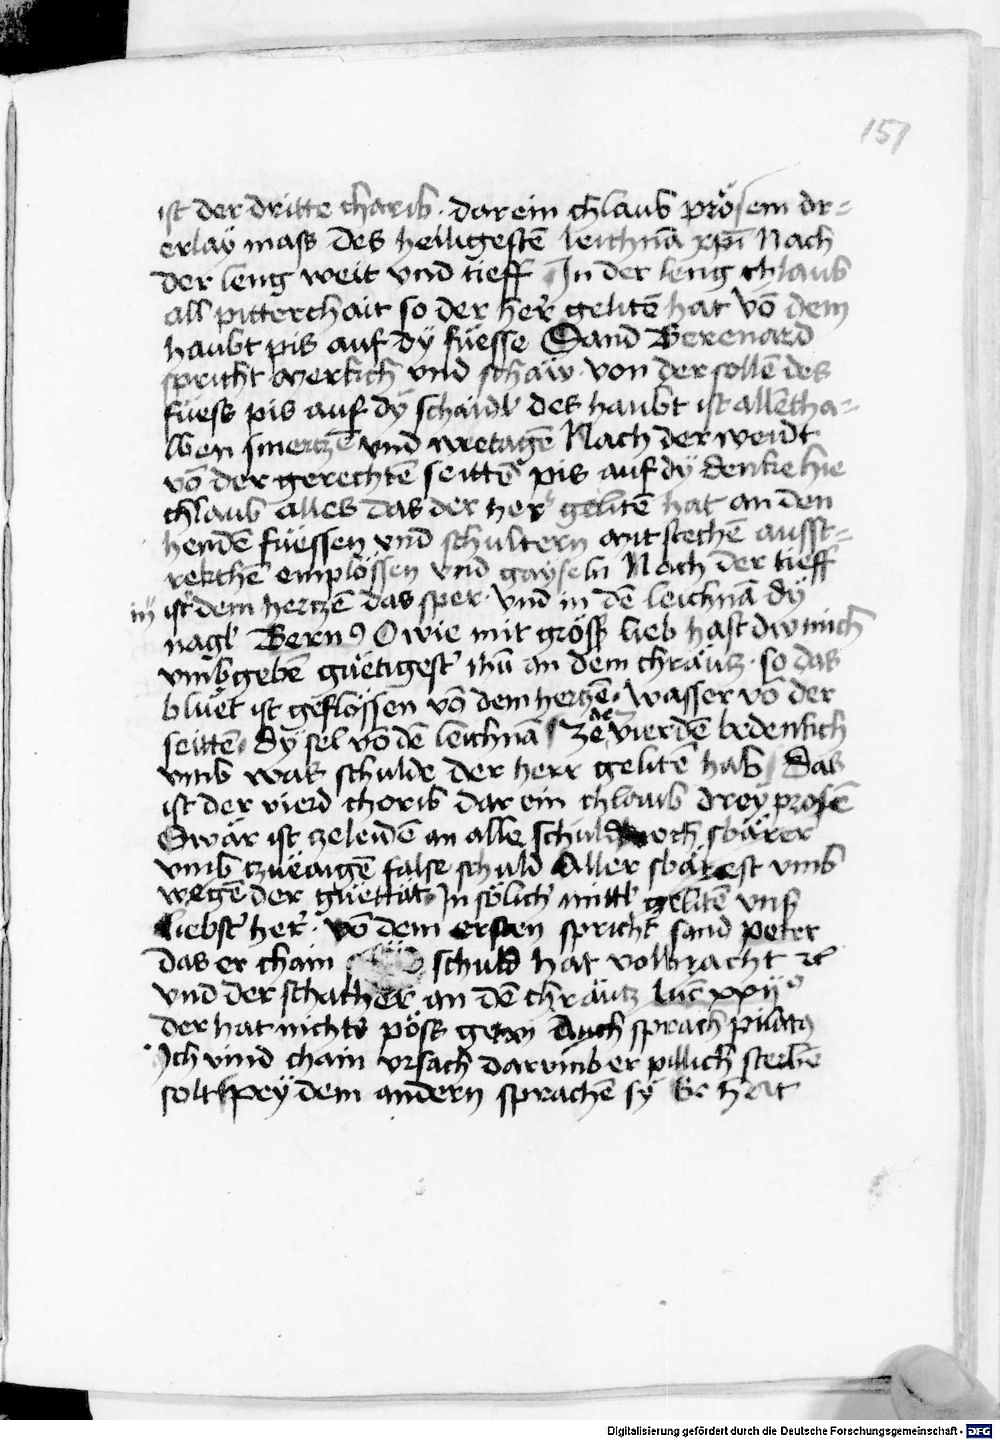 151
ist der dritte charib · darein chlaub prösem dr=
erlaÿ mass des heiligestē leichnā xp̄i Nach
der leng weit vnd tieff In der leng chlaub
all pitterchait so der her gelitē hat vō dem
haubt pis auf dÿ füesse Sand Berenard
spricht Merkich vnd schäw · von der sollē des
füess pis auf dÿ schaidl des haubt ist allētha=
lben smertzē vnd wetagē Nach der weidt
vō der gerechtē seittē pis auf dÿ denke hie
chlaub alles das der her gelitē hat an den
hendē füessen vnd schultern mit stechē ausst=
rekchē emplössen vnd gayseln Nach der tieff
iiij ist dem hertzē das sper · vnd in dē leichnā dÿ
nagl Bernꝰ O wie mit gröss lieb hast dw mich
vmbgebē güetigest ihū an dem chräutz · so das
bluet ist geflössen vō dem hertzē · wasser vō der
seittē · dÿ sel vō dē leichnā Ze vierdē bedenkich
vmb was schulde der herr gelitē hab Das
ist der vierd chorib dar ein chlaub dreÿ prosē
Swär ist zeleidē an alle schuld noch sbärer
vmb czuēaigē false schuld Aller sbärest vmb
wegē der güettät In sölich mittl gelitē vnser
liebst her · vō dem ersten spricht sand peter
das er chain schuld hat volbracht ꝛc
vnd der schacher an dē chräutz luc̄ xxij
der hat nichts pöss getan Auch sprach pilatꝰ
Ich vind chain vrsach darvmb er pillich sterbē
solt peÿ dem andern sprachē sÿ Er hat
Digitalisierung gefördert durch die Deutsche Forschungsgemeinschaft - DFG